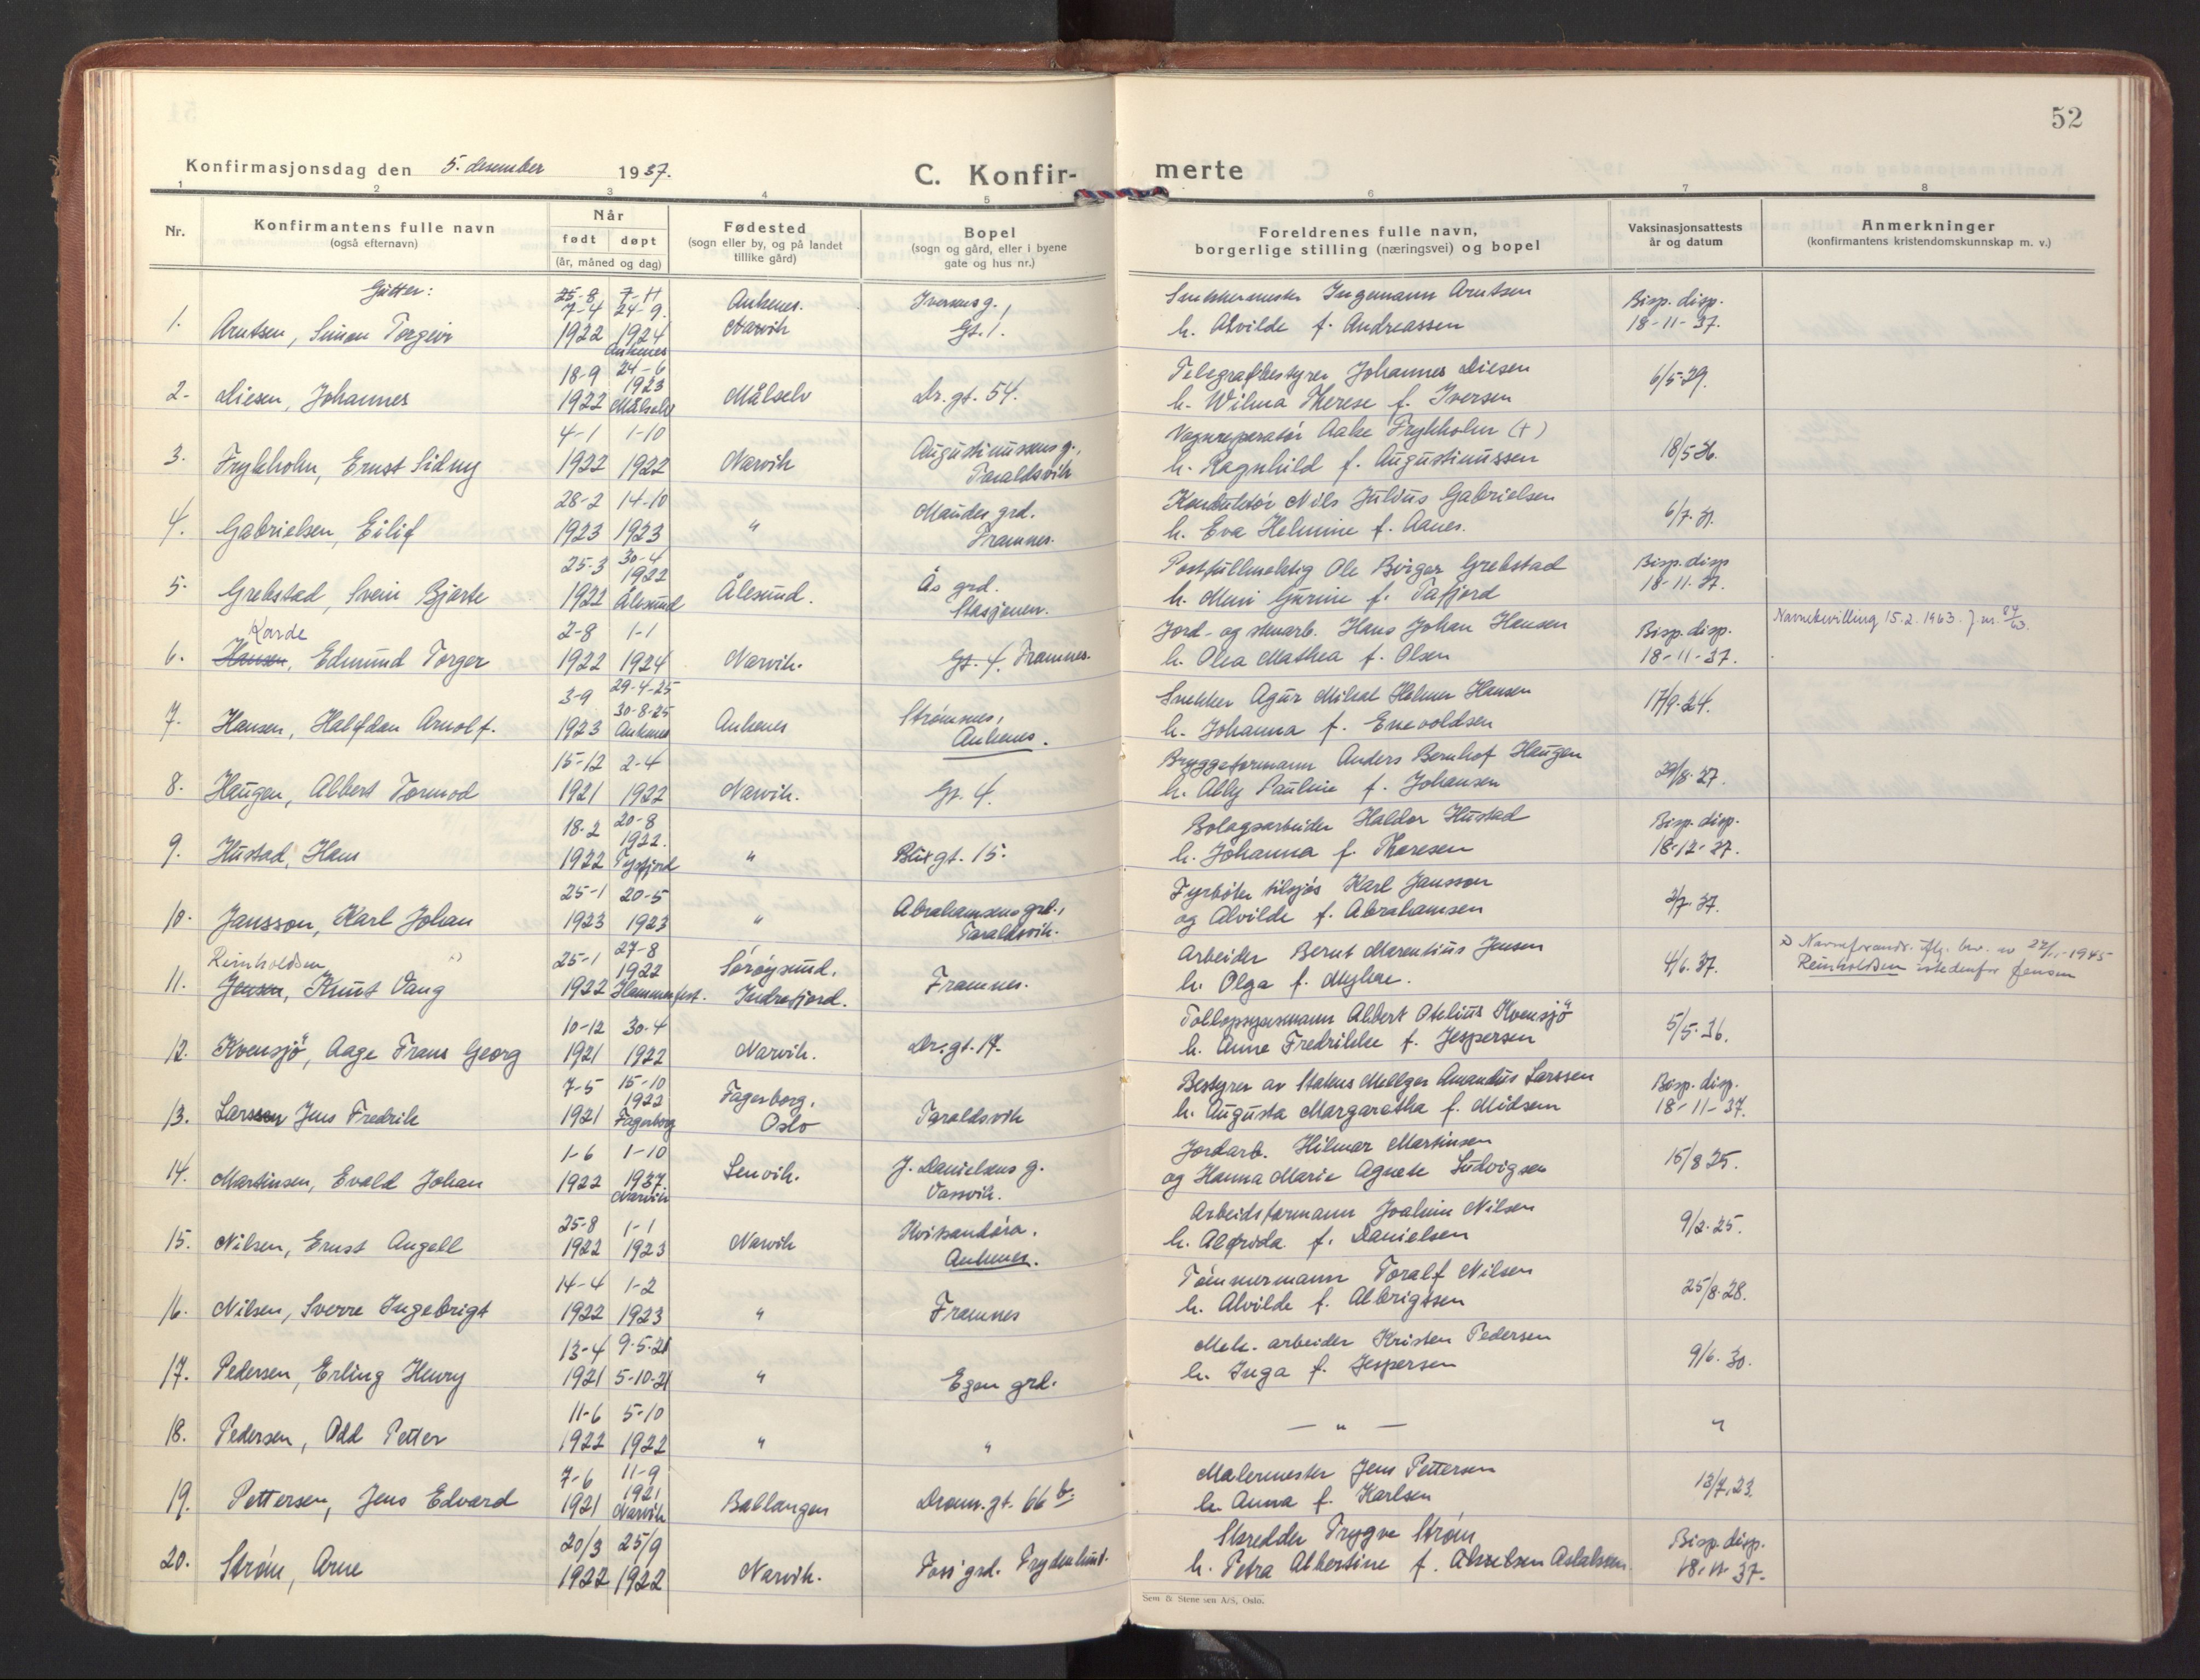 52
Konfirmasjonsdag den 5. desember 1937.
C. Konfir-
merte
1 2 3 4 5 6 7 8
Nr.
Konfirmantens fulle navn
(også efternavn)
Når
født døpt
(år, måned og dag)
Fødested
(sogn eller by, og på landet
tillike gård)
Bopel
(sogn og gård, eller i byene
gate og hus nr.)
Foreldrenes fulle navn,
borgerlige stilling (næringsvei) og bopel
Vaksinasjonsattests
år og datum
Anmerkninger
(konfirmantens kristendomskunnskap m. v.)
Gutter:
25-8 7-11 Ankenes. Iversens g., Snekkermester Ingemann Arntsen Bisp. disp.
7-4 24-9.
1. Arntsen, Simon Torgeir 1922 1924 Narvik Gt. 1. h. Alvilde f. Andreassen 18-11-37.
Ankenes
18-9 24-6 Telegrafbestyrer Johannes Diesen 6/5-29.
1923
2. Diesen, Johannes 1922 Målselv Målselv Dr. gt. 54. h. Wilma Therese f. Iversen
4-1 1-10 Augustinussens g., Vognreperatør Aake Frykholm (+) 18/5-36.
3. Frykholm, Ernst Sidny 1922 1922 Narvik Taraldsvik h. Ragnhild f. Augustinussen
28-2 14-10 Maudes grd. Konduktør Nils Julius Gabrielsen 6/7-31.
4. Gabrielsen, Eilif 1923 1923 " Framnes. h. Eva Helmine f. Aanes.
25-3 30-4 Ås grd. Postfullmektig Ole Birger Grebstad Bisp. disp
1922
5. Grebstad, Svein Bjarte 1922 Ålesund Ålesund. Stasjonen. h. Muri Gurine f. Tafjord 18-11-37.
Korde 2-8 1-1 Jord- og stenarb. Hans Johan Hansen Bisp. disp. Navnebevilling 15.2.1963. J. nr. 84/63.
6. Hansen, Edmund Torger 1922 1924 Narvik. Gt. 4. Framnes. h. Olea Mathea f. Olsen 18-11-37.
3-9 29-4-25 Strømnes, Snekker Agur Mikal Helmer Hansen 17/9-24.
30-8-25
7. Hansen, Halfdan Arnolf. 1923 Ankenes Ankenes Ankenes. h. Johanna f. Enevoldsen
15-12 2-4 Bryggeformann Anders Bernhof Haugen 29/8-27.
8. Haugen, Albert Tormod 1921 1922 Narvik. Gt. 4. h. Alby Pauline f. Johansen
18-2 20-8 Bolagsarbeider Haldor Hustad Bisp. disp.
1922.
9. Hustad, Hans 1922 Tysfjord " Blix gt. 15. h. Johanna f. Thoresen 18-12-37.
25-1 20-5 Abrahamsens grd., Fyrbøter tilsjøs Karl Jansson 2/7-37.
10. Jansson, Karl Johan 1923 1923 " Taraldsvik. og Alvilde f. Abrahamsen
Reinholdsen x) 25-1 27-8 Sørøysund. Arbeider Bernt Marentius Jensen 4/6.37. x) Navneforandr. flg. bev. av 27/11-1945
1922
11. Jensen, Knut Vang 1922 Hammerfest. Indrefjord. Framnes. h. Olga f. Myhre. Reinholdsen istedenfor Jensen
10-12 30-4 Tollopsynsmann Albert Otelius Kvensjö 5/5-36.
12. Kvensjö, Aage Frans Georg 1921 1922 Narvik. Dr. gt. 17. h. Anne Fredrikke f. Jespersen
7-5 15-10 Fagerborg, Bestyrer av Statens Mellger Amandus Larssen Bisp. disp.
1922
13. Larssen Jens Fredrik 1921 Fagerborg Oslo Taraldsvik h. Augusta Margaretha f. Midsem 18-11-37.
1-6 1-10 Senvik. J. Danielsens g. Jordarb. Hilmar Martinsen 15/8 25.
14. Martinsen, Evald Johan 1922 1937 Vassvik. og Hanna Marie Agnete Ludvigsen
Narvik
25-8 1-1 Kvitsandøra. Arbeidsformann Joakim Nilsen 9/2-25.
15. Nilsen, Ernst Angell 1922 1923 Narvik Ankenes. h. Alfrida f. Danielsen
14-4 1-2 Tømmermann Toralf Nilsen 25/8-28.
16. Nilsen, Sverre Ingebrigt 1922 1923 " Framnes h. Alvilde f. Albrigtsen
13-4 9-5-21 Mek. arbeider Kristen Pedersen 9/6-30.
17. Pedersen, Erling Henry 1921 5-10-21 " Egen grd. h. Inga f. Jespersen
11-6 5-10 — " — "
18. Pedersen, Odd Petter 1922 1922 " "
7-6 11-9 Malermester Jens Pettersen 13/7.23.
1921
19. Pettersen, Jens Edvard 1921 Narvik Ballangen Dronn. gt. 66 b. h. Anna f. Karlsen
20/3 25/9 Skredder Trygve Strøm Bisp. disp.
20. Strøm, Arne 1922 1922 Narvik. Foss' grd. Frydenlund. h. Petra Albertine f. Aslaksen 18-11-37.
Sem & Stenersen A/S, Oslo.